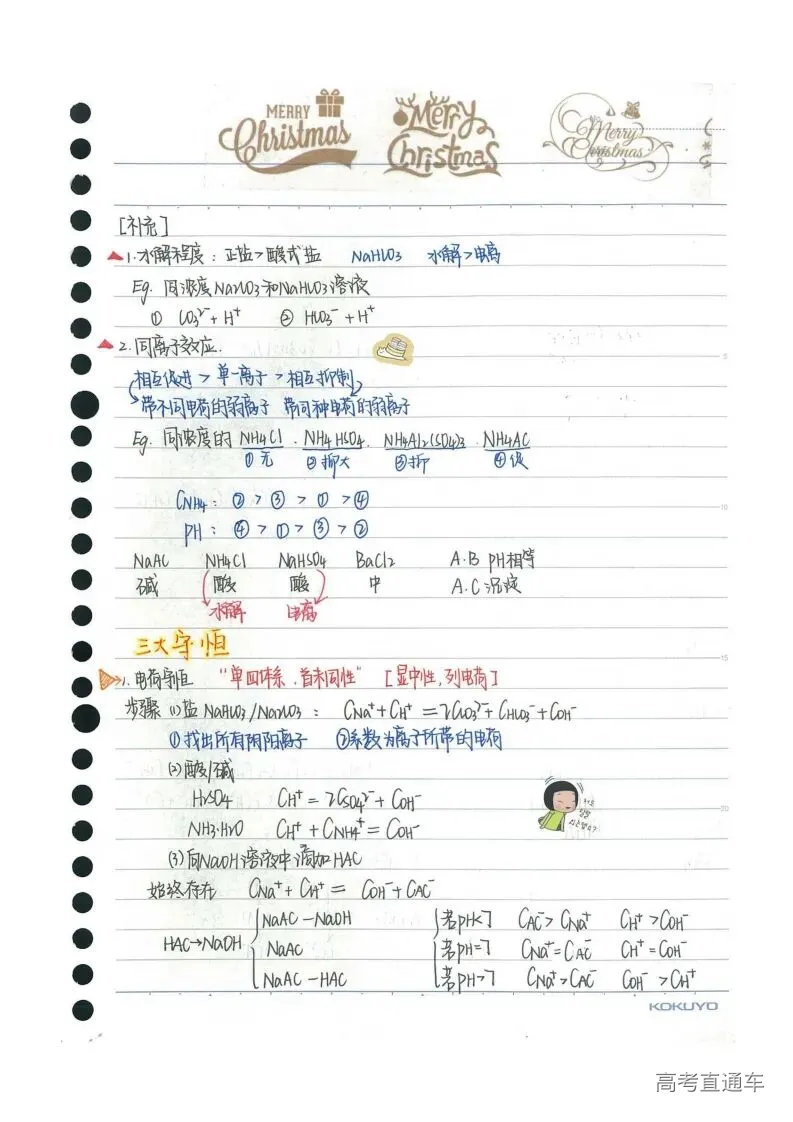 MERRY Christmas Merry Christmas Merry Christmas
[补充]
1. 水解程度：正盐>酸式盐 NaHCO3 水解>电离
Eg. 同浓度Na2CO3和NaHCO3溶液
① CO3²⁻+H⁺ ② HCO3⁻+H⁺
2. 同离子效应.
相互促进 > 单一离子 > 相互抑制
带不同电荷的弱离子 带同种电荷的弱离子
Eg. 同浓度的 NH4Cl . NH4HSO4 . NH4Al2(SO4)3 . NH4AC
①无 ②抑大 ③抑 ④促
CNH4: ② > ③ > ① > ④
PH: ④ > ① > ③ > ②
NaAC NH4Cl NaHSO4 BaCl2 A.B PH相等
碱 酸 酸 中 A.C 沉淀
水解 电离
三大守恒
1. 电荷守恒 "单四体系.首末同性" [显中性,列电荷]
步骤 (1)盐 NaHCO3/Na2CO3: CNa⁺+CH⁺=2CCO3²⁻+CHCO3⁻+COH⁻
①找出所有阴阳离子 ②系数为离子所带的电荷
(2)酸/碱
H2SO4 CH⁺=2CSO4²⁻+COH⁻
NH3·H2O CH⁺+CNH4⁺=COH⁻
(3)向NaOH溶液中滴加HAC
始终存在 CNa⁺+CH⁺= COH⁻+CAC⁻
NaAC-NaOH 若pH<7 CAC⁻>CNa⁺ CH⁺>COH⁻
HAC→NaOH NaAC 若pH=7 CNa⁺=CAC⁻ CH⁺=COH⁻
NaAC-HAC 若pH>7 CNa⁺>CAC⁻ COH⁻>CH⁺
KOKUYO
高考直通车